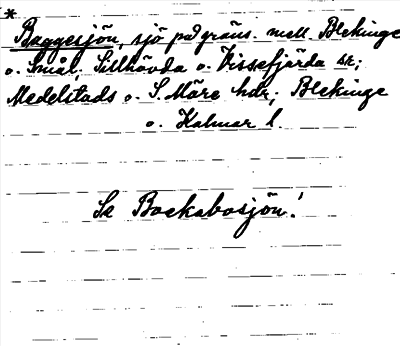 *
Baggesjön, sjö på gräns. mell. Blekinge
o. Smål; Sillhövda o. Vissefjärda sr;
Medelstads o. S. Möre hdr; Blekinge
o. Kalmar l.
Se Bockabosjön!